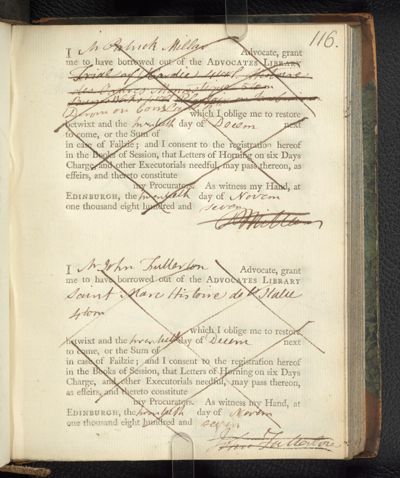 116.
I Mr Patrick Miller Advocate, grant
me to have borrowed out of the ADVOCATES LIBRARY
4 tom Histoire
des
on
which I oblige me to restore
betwixt and the twelfth day of Decem next
to come, or the Sum of
in case of Failzie; and I consent to the registration hereof
in the Books of Session, that Letters of Horning on six Days
Charge, and other Executorials needful, may pass thereon, as
effeirs, and thereto constitute
my Procurators. As witness my Hand, at
EDINBURGH, the twelfth day of Novem
one thousand eight hundred and seven
P Miller
I Mr John Fullerton Advocate, grant
me to have borrowed out of the ADVOCATES LIBRARY
Saint Marc Histoire de l'Italie
4 tom
which I oblige me to restore
betwixt and the twelfth day of Decem next
to come, or the Sum of
in case of Failzie; and I consent to the registration hereof
in the Books of Session, that Letters of Horning on six Days
Charge, and other Executorials needful, may pass thereon,
as effeirs, and thereto constitute
my Procurators. As witness my Hand, at
EDINBURGH, the twelfth day of Novem
one thousand eight hundred and seven
John Fullerton